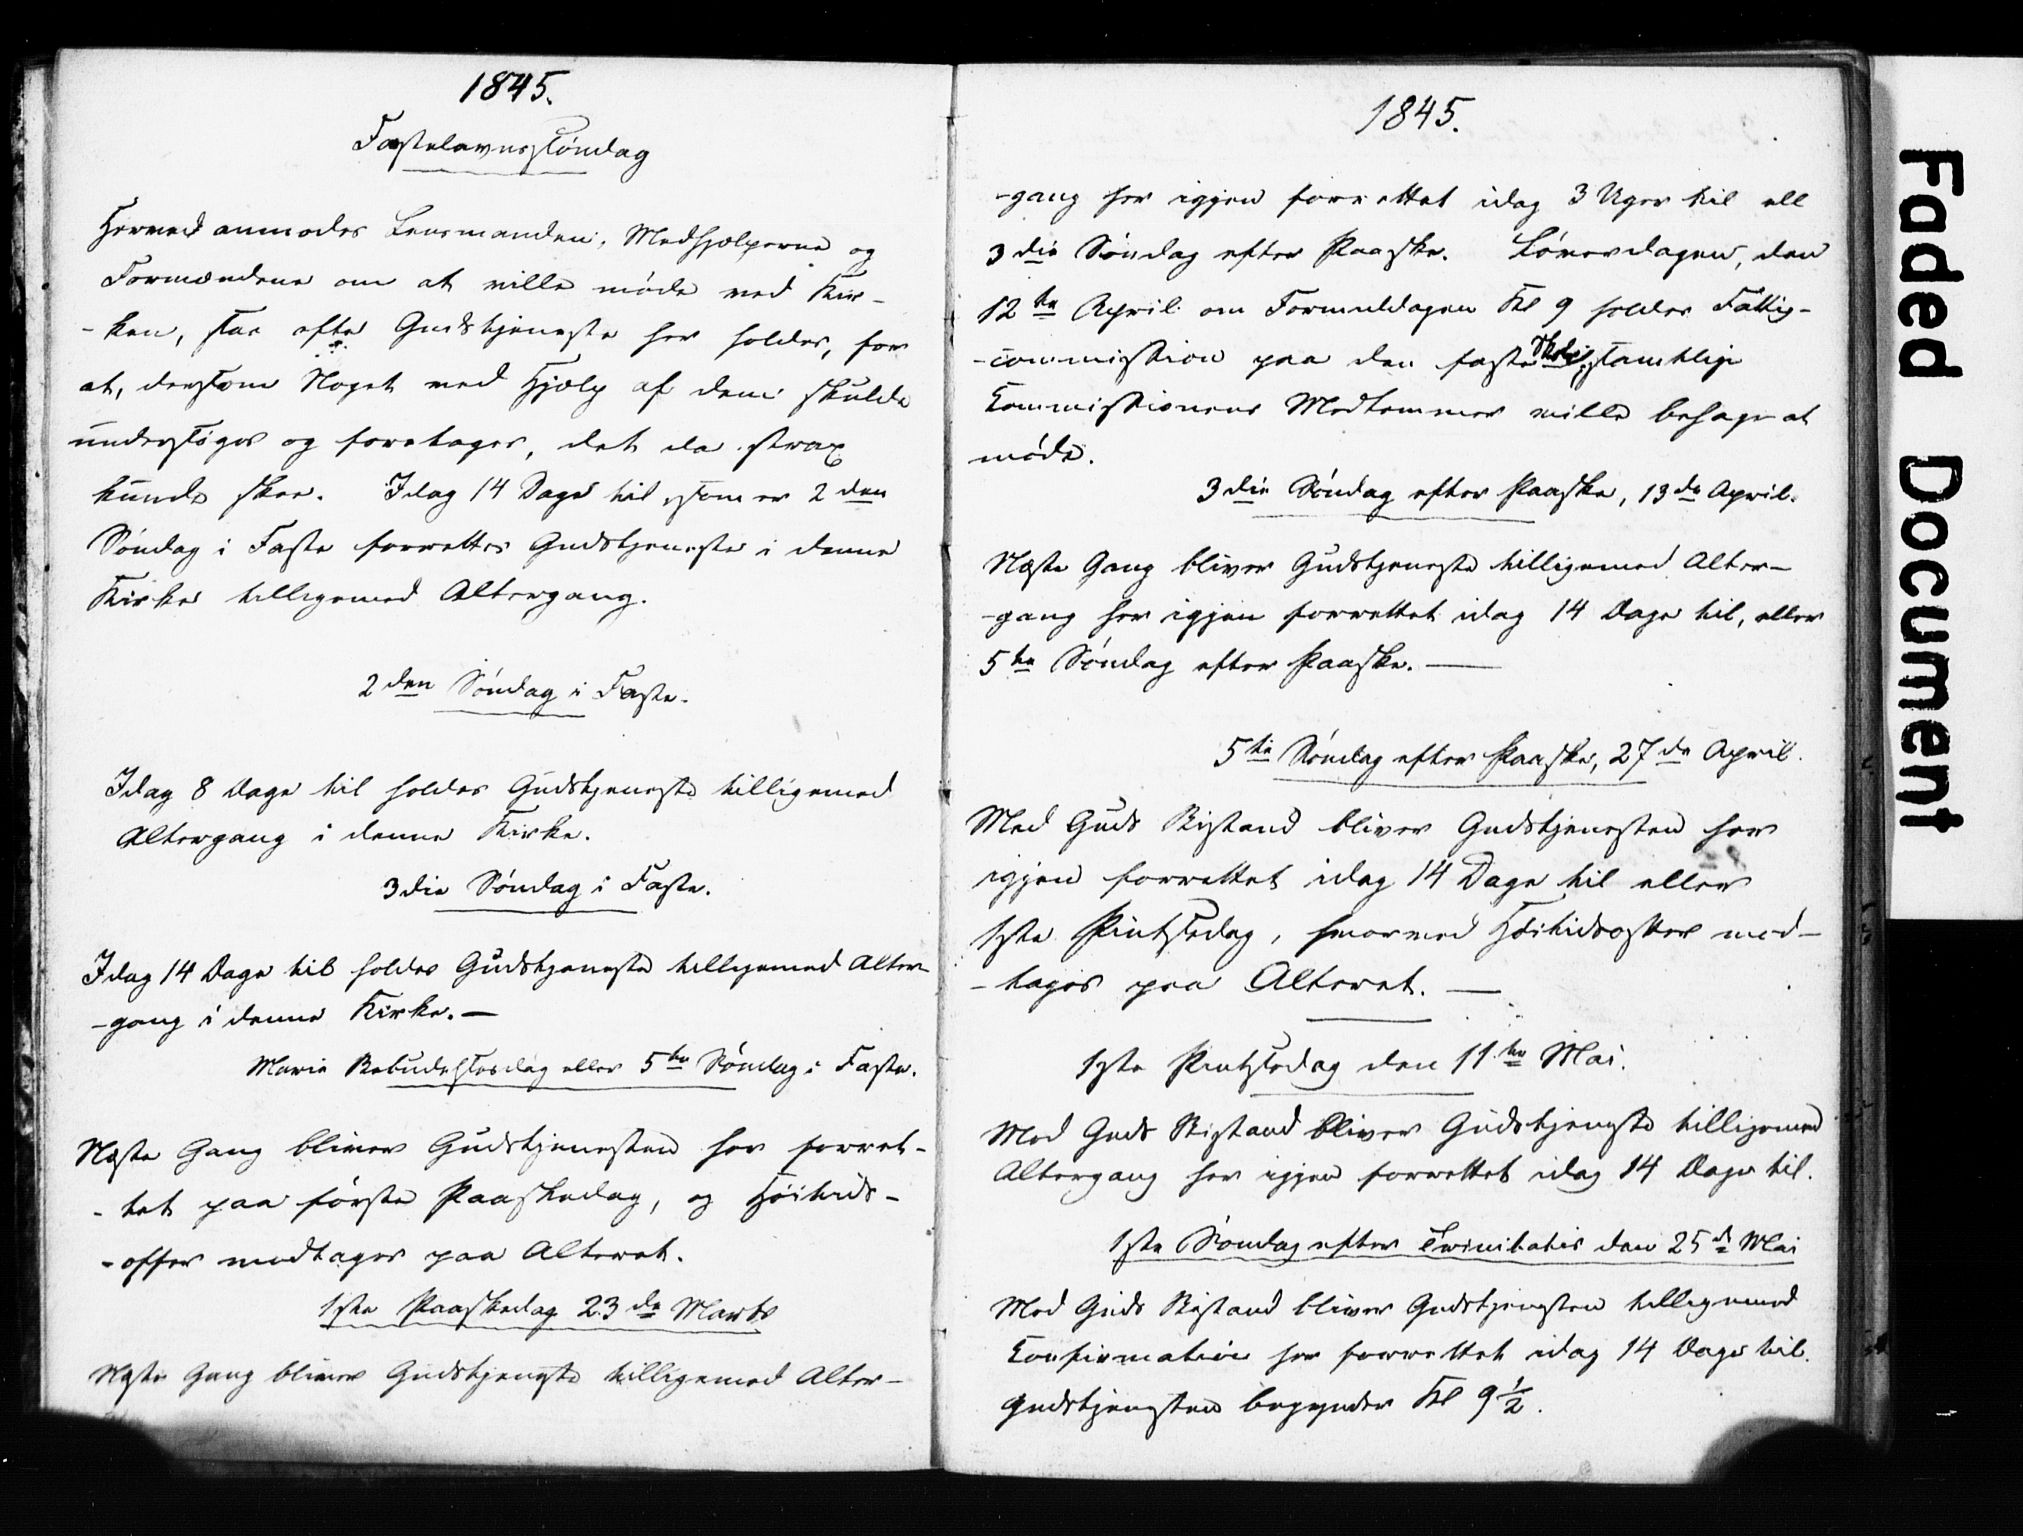 1845.
Fastelavnssöndag
Herved anmodes Lensmanden, Medhjelperne og
Formændene om at ville möde ved Kir-
-ken, saa ofte Gudstjeneste her holdes, for
at, dersom Noget ved Hjelp af dem skulde
undersöges og foretages, det da strax
kunde skee. Idag 14 Dage til, som er 2den
Söndag i Faste forrettes Gudstjeneste i denne
Kirke tilligemed Altergang.
2den Söndag i Faste.
Idag 8 Dage til holdes Gudstjeneste tilligemed
Altergang i denne Kirke.
3die Söndag i Faste.
Idag 14 Dage til holdes Gudstjeneste tilligemed Alter-
-gang i denne Kirke. —
Mariæ Bebudelsesdag eller 5te Söndag i Faste.
Næste Gang bliver Gudstjenesten her forret-
-tet paa förste Paaskedag, og Höitids-
-offer modtages paa Alteret.
1ste Paaskedag 23de Marts
Næste Gang bliver Gudstjeneste tilligemed Alter-
1845.
-gang her igjen forrettet idag 3 Uger til ell
3die Söndag efter Paaske. Löverdagen, den
12te April om Formiddagen Kl 9 holdes Fattig-
-commission paa den faste Skole; samtlige
Commissionens Medlemmer ville behage at
möde.
3die Söndag efter Paaske, 13de April.
Næste Gang bliver Gudstjeneste tilligemed Alter-
-gang her igjen forrettet idag 14 Dage til, eller
5te Söndag efter Paaske. —
5te Söndag efter Paaske, 27de April.
Med Guds Bistand bliver Gudstjenesten her
igjen forrettet idag 14 Dage til eller
1ste Pintsedag, hvorved Höitidsoffer mod-
-tages paa Alteret. —
1ste Pintsedag den 11te Mai.
Med Guds Bistand bliver Gudstjeneste tilligemed
Altergang her igjen forrettet idag 14 Dage til.
1ste Söndag efter Trinitatis den 25de Mai
Med Guds Bistand bliver Gudstjenesten tilligemed
Confirmation her forrettet idag 14 Dage til.
Gudstjenesten begynder Kl 9½.
Faded Document